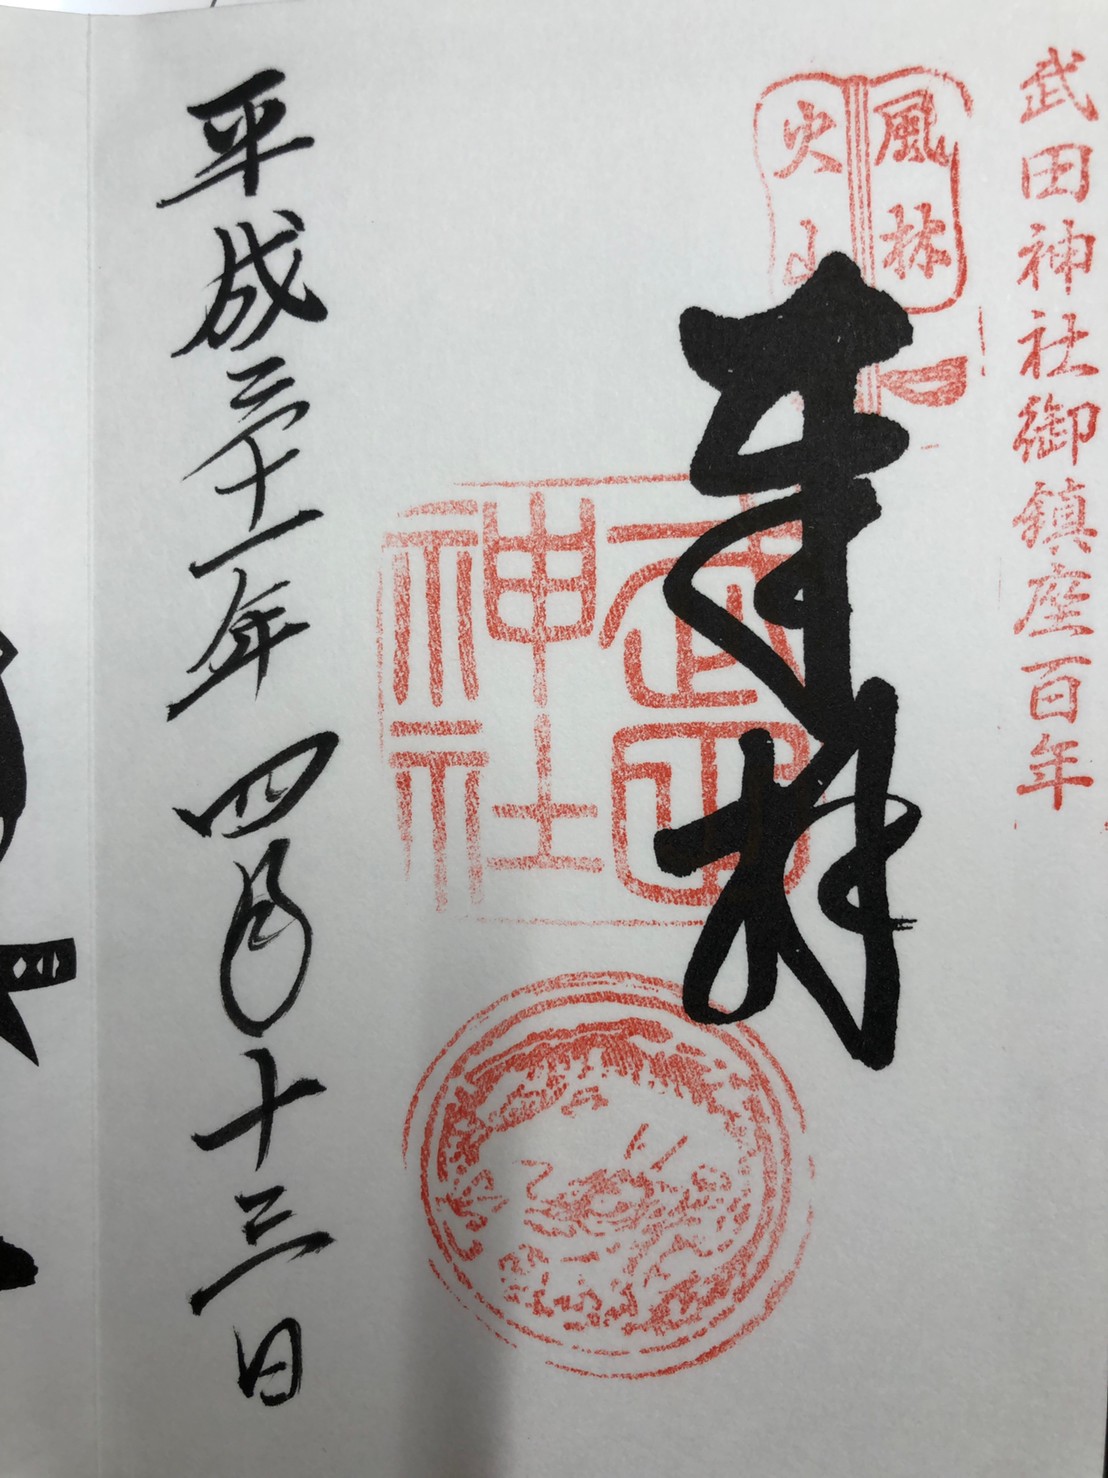 武田神社御鎮座百年
風林
火山
奉拝
武田
神社
平成三十一年四月十三日